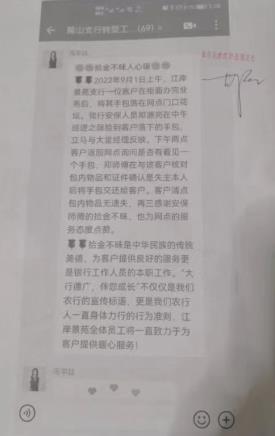 支行转型工...（69）
拾金不昧人心暖
2022年9月1日上午，江岸
景苑支行一位客户在柜面办完业
务后，将其手包落在网点门口花
坛。我行安保人员郑师傅在中午
巡逻之际捡到客户落下的手包，
立马与大堂经理反映。下午两点
客户返回网点询问是否有看见一
个手包，郑师傅在与该客户核对
包内物品和证件确认是失主本人
后将手包交还给客户。客户清点
包内物品无遗失，再三感谢安保
师傅的拾金不昧，也为网点的服
务态度点赞。
拾金不昧是中华民族的传统
美德，为客户提供良好的服务更
是银行工作人员的本职工作。“大
行德广，伴您成长”不仅仅是我们
农行的宣传标语，更是我们农行
人一直身体力行的行为准则，江
岸景苑全体员工将一直致力于为
客户提供暖心服务！